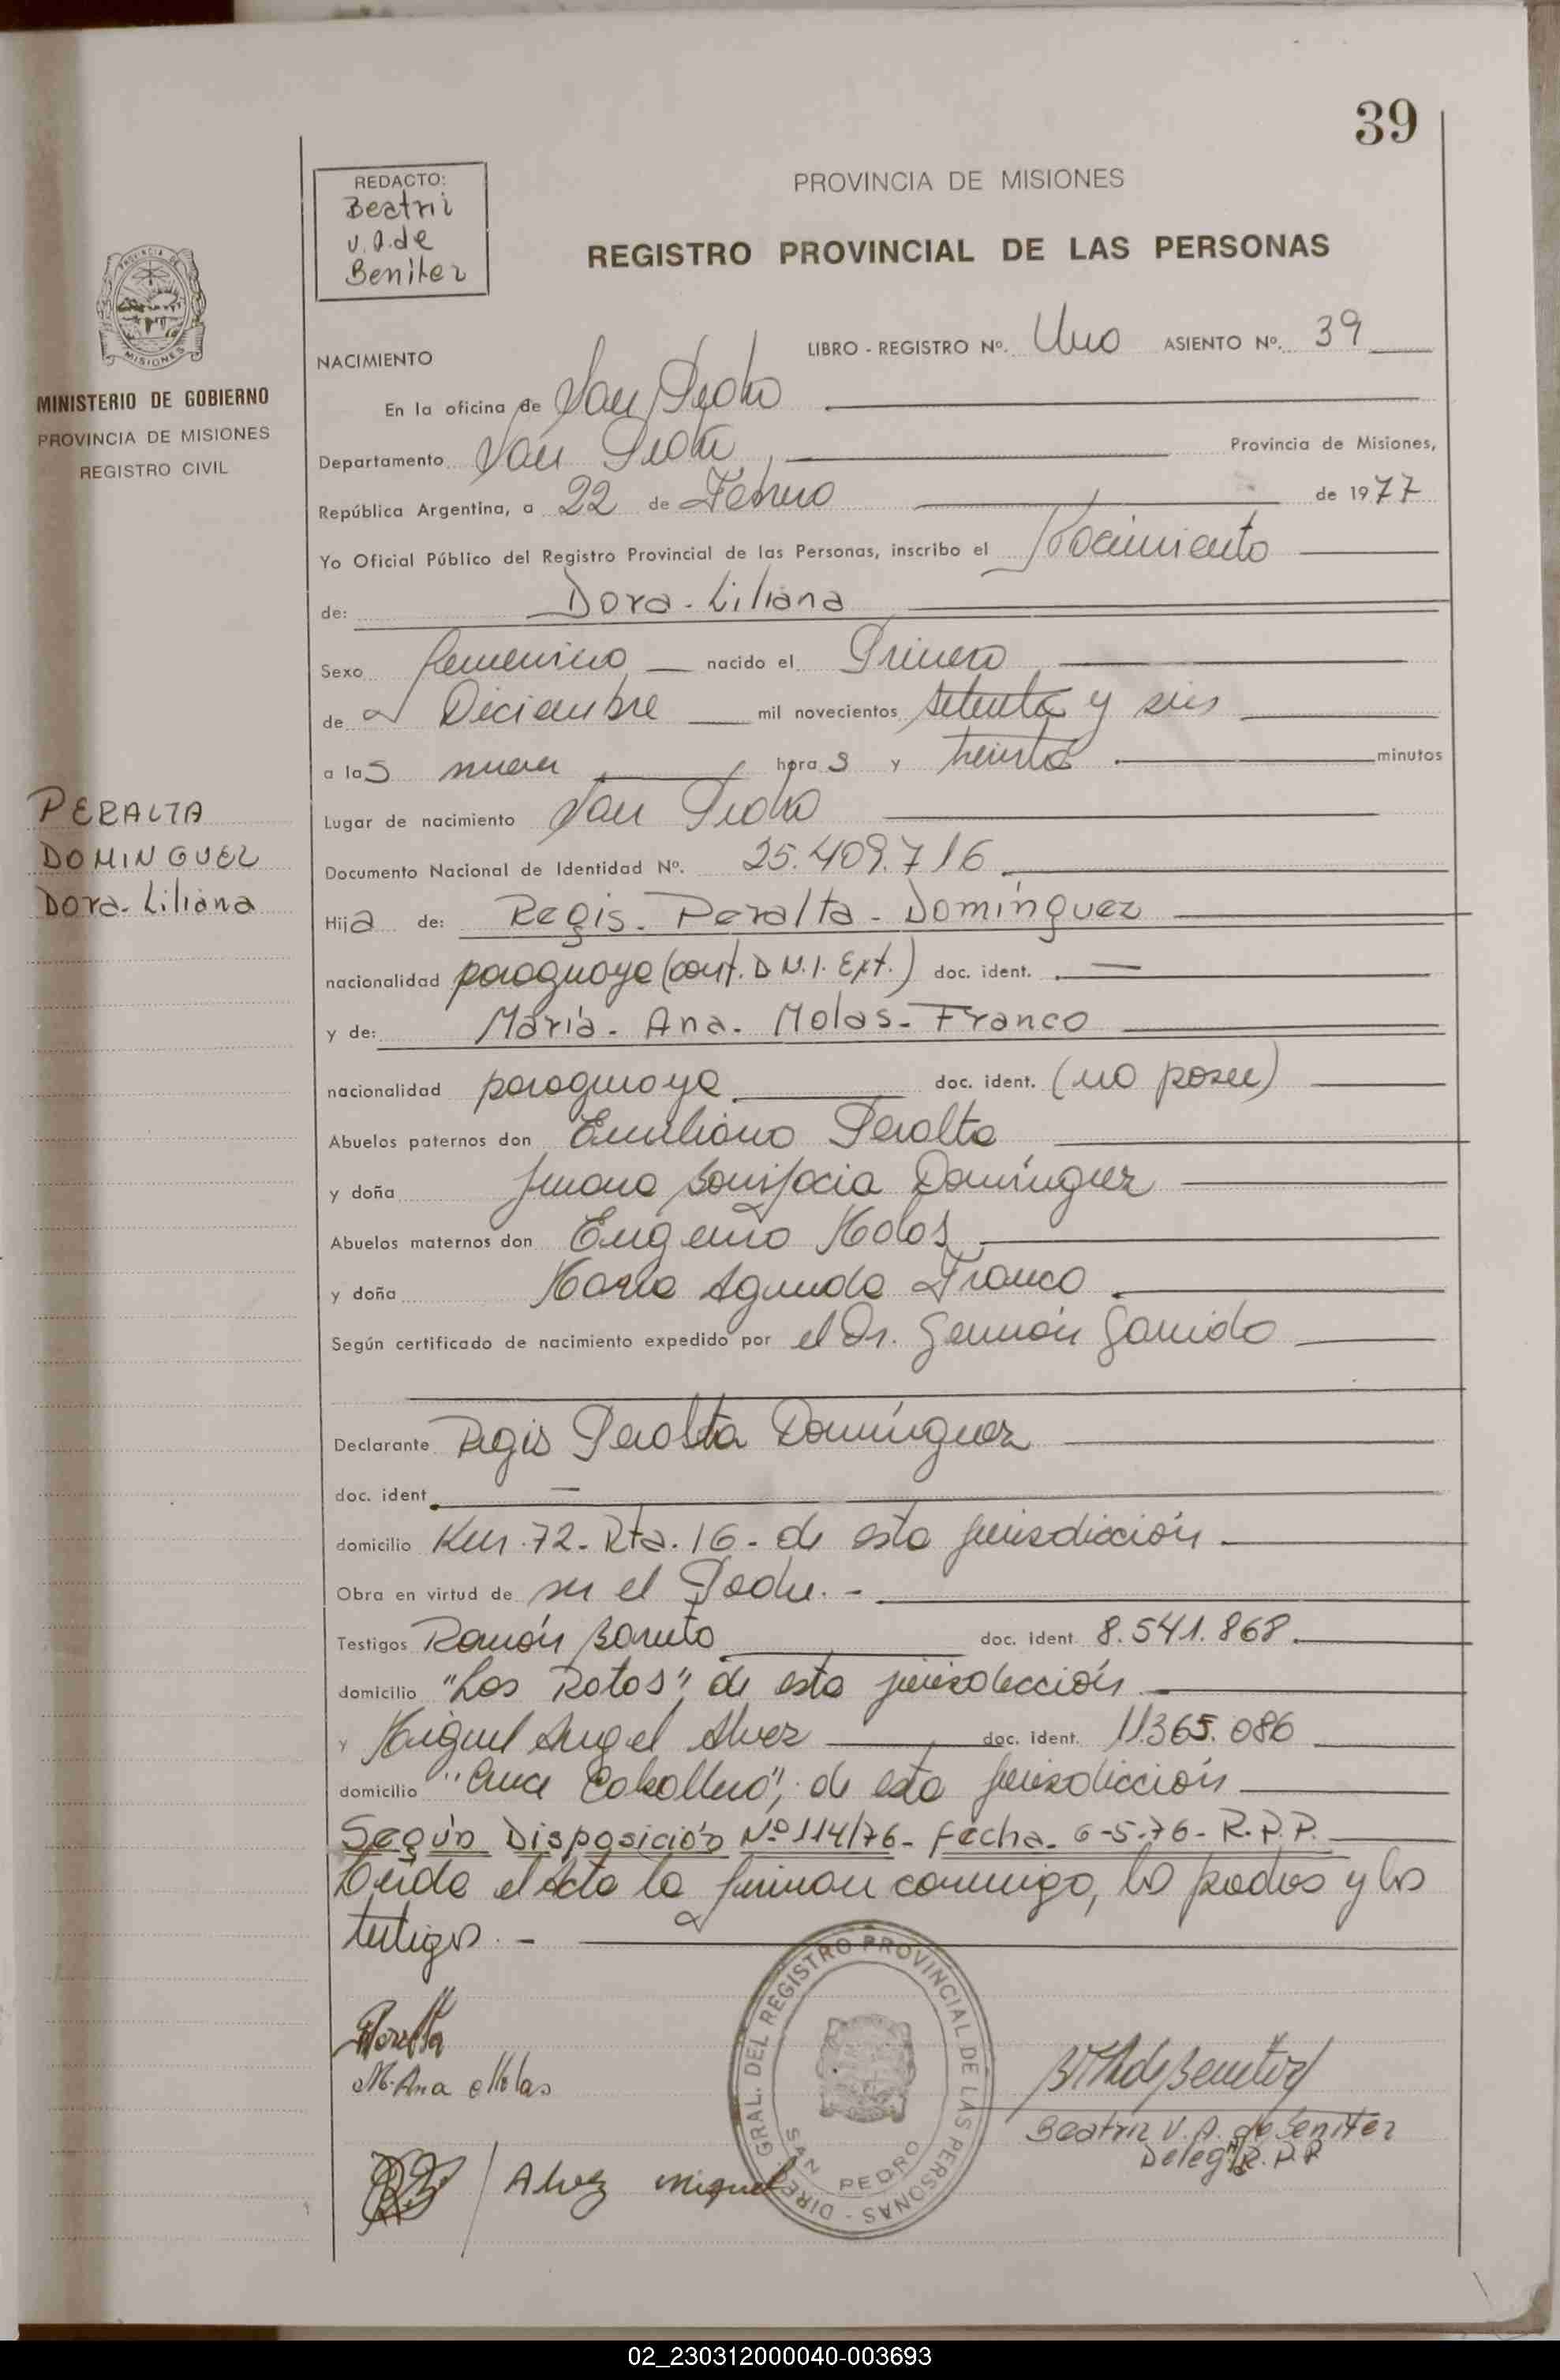 39
REDACTO:
Beatriz
v. A. de
Benitez
PROVINCIA DE MISIONES
REGISTRO PROVINCIAL DE LAS PERSONAS
PROVINCIA DE
MISIONES
MINISTERIO DE GOBIERNO
PROVINCIA DE MISIONES
REGISTRO CIVIL
LIBRO - REGISTRO Nº. Uno ASIENTO Nº. 39
NACIMIENTO
En la oficina de San Pedro
Departamento San Pedro, Provincia de Misiones,
República Argentina, a 22 de Febrero de 1977
Yo Oficial Público del Registro Provincial de las Personas, inscribo el Nacimiento
de: Dora - Liliana
Sexo femenino nacido el Primero
de Diciembre mil novecientos setenta y seis
a las nueve horas y treinta minutos
PERALTA
DOMINGUEZ
Dora - Liliana
Lugar de nacimiento San Pedro
Documento Nacional de Identidad Nº. 25.409.716
Hija de: Regis - Peralta - Domínguez
nacionalidad paraguaya (cont. D N.I. Ext.) doc. ident. —
y de: María - Ana - Molas - Franco
nacionalidad paraguaya doc. ident. (no posee)
Abuelos paternos don Emiliano Peralta
y doña Juana Bonifacia Domínguez
Abuelos maternos don Eugenio Molas
y doña María Agueda Franco
Según certificado de nacimiento expedido por el Dr. Germán Garrido
Declarante Regis Peralta Domínguez
doc. ident. —
domicilio Km. 72 - Rta. 16 - de esta jurisdicción
Obra en virtud de ser el Padre. -
Testigos Ramón doc. ident. 8.541.868
domicilio "Los Rotos", de esta jurisdicción
y Miguel Angel Alvez doc. ident. 11365.086
domicilio "Cruce Caballero", de esta jurisdicción
Según Disposición Nº 114/76 - Fecha - 6-5-76 - R.P.P.
Leída el Acta la firman conmigo, los padres y los
testigos. -
Peralta
M. Ana Molas
Alvez Miguel
DIREC. GRAL. DEL REGISTRO PROVINCIAL DE LAS PERSONAS -
SAN PEDRO
Beatriz V. A. de Benitez
Deleg. R.P.P
02_230312000040-003693